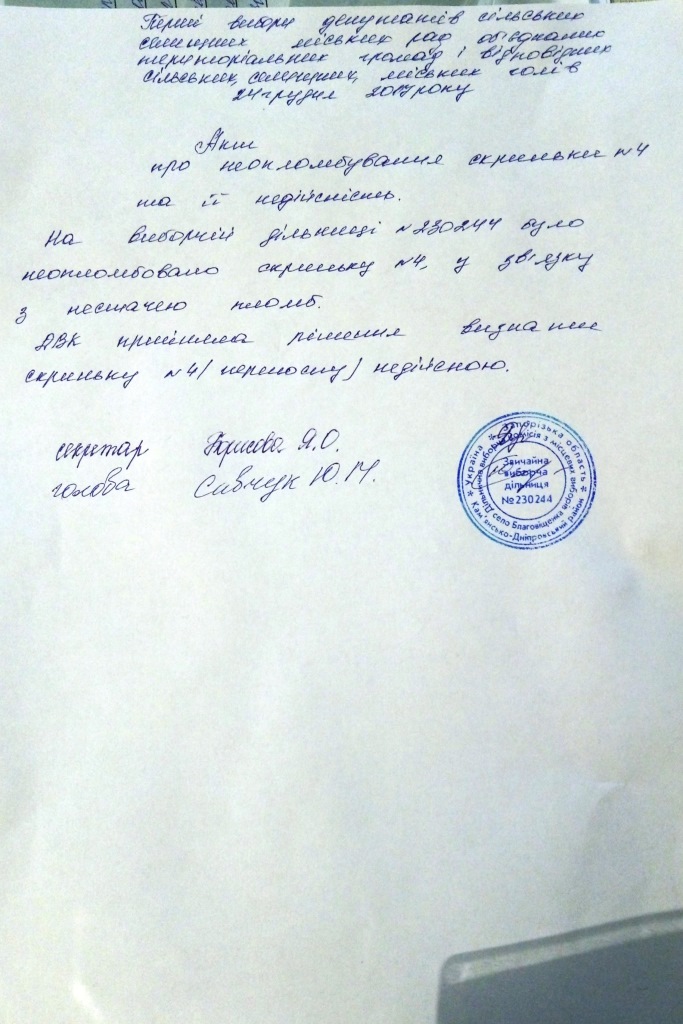 Перші вибори депутатів сільських
селищних міських рад об'єднаних
територіальних громад і відповідних
сільських, селищних, міських голів
24 грудня 2017 року
Акт
про неопломбування скриньки №4
та її недійсність.
На виборчій дільниці №230244 було
неопломбовано скриньку №4, у зв'язку
з нестачею пломб.
ДВК прийняла рішення визнати
скриньку №4 (переносну) недійсною.
секретар Борисова Я.О.
голова Савчук Ю.М.
* Україна * Запорізька область *
Кам'янсько-Дніпровський район
Дільнична виборча комісія з місцевих виборів
село Благовіщенка
Звичайна
виборча
дільниця
№230244